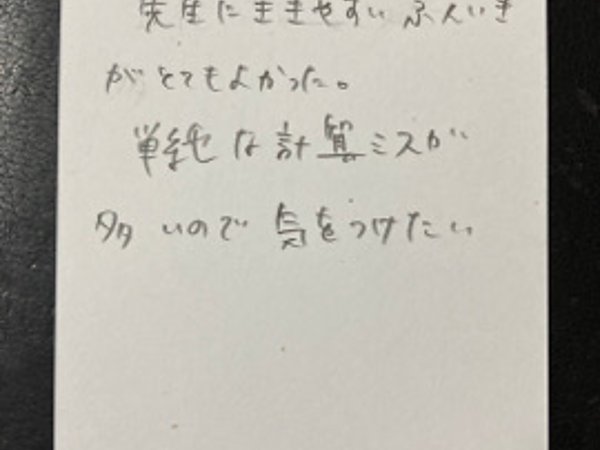 先生にききやすいふんいき
がとてもよかった。
単純な計算ミスが
多いので気をつけたい